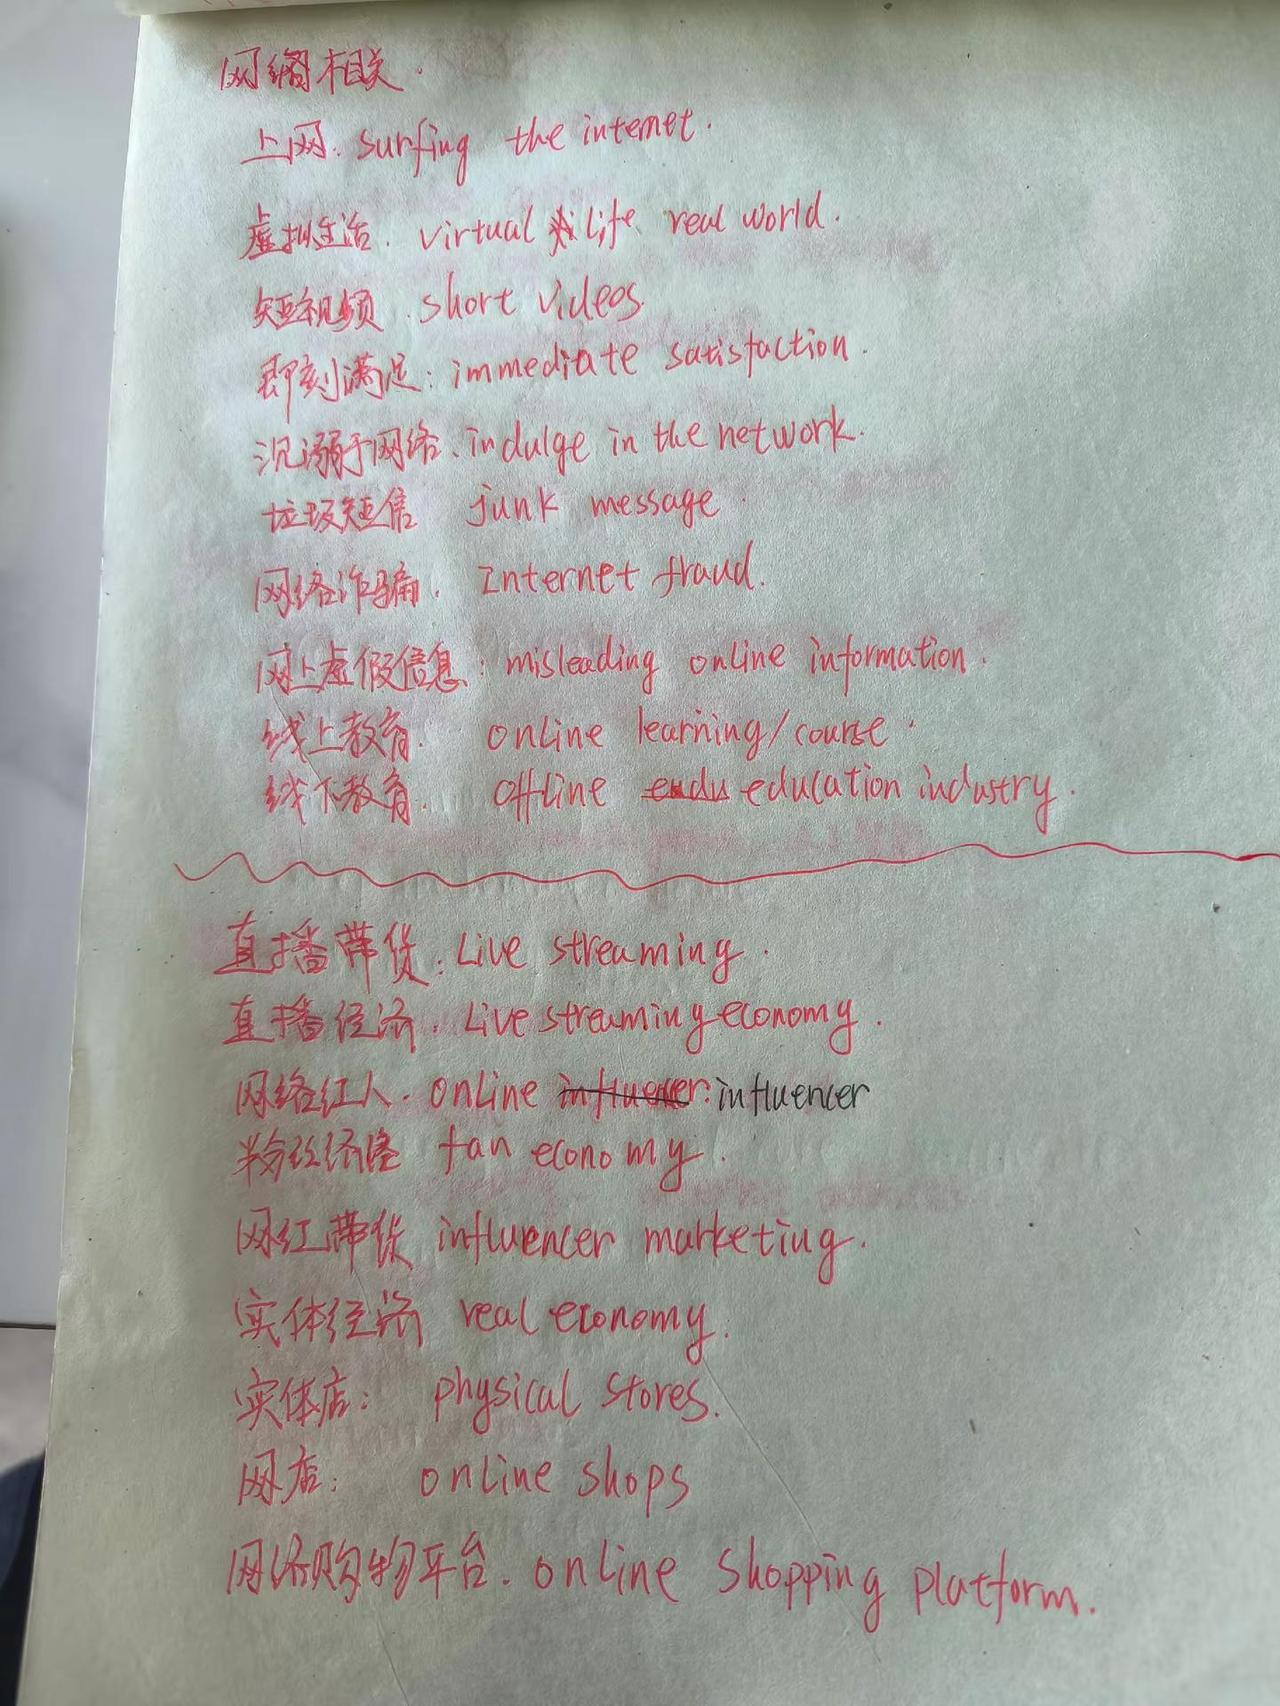 网络相关.
上网. surfing the internet.
虚拟生活. virtual life real world.
短视频. short videos.
即刻满足: immediate satisfaction.
沉溺于网络. indulge in the network.
垃圾短信 junk message.
网络诈骗. Internet fraud.
网上虚假信息: misleading online information.
线上教育. online learning/course.
线下教育. offline education industry.
直播带货: Live streaming.
直播经济. Live streaming economy.
网络红人. online influencer
粉丝经济 fan economy.
网红带货 influencer marketing.
实体经济 real economy.
实体店: physical stores.
网店: online shops
网络购物平台. online shopping platform.